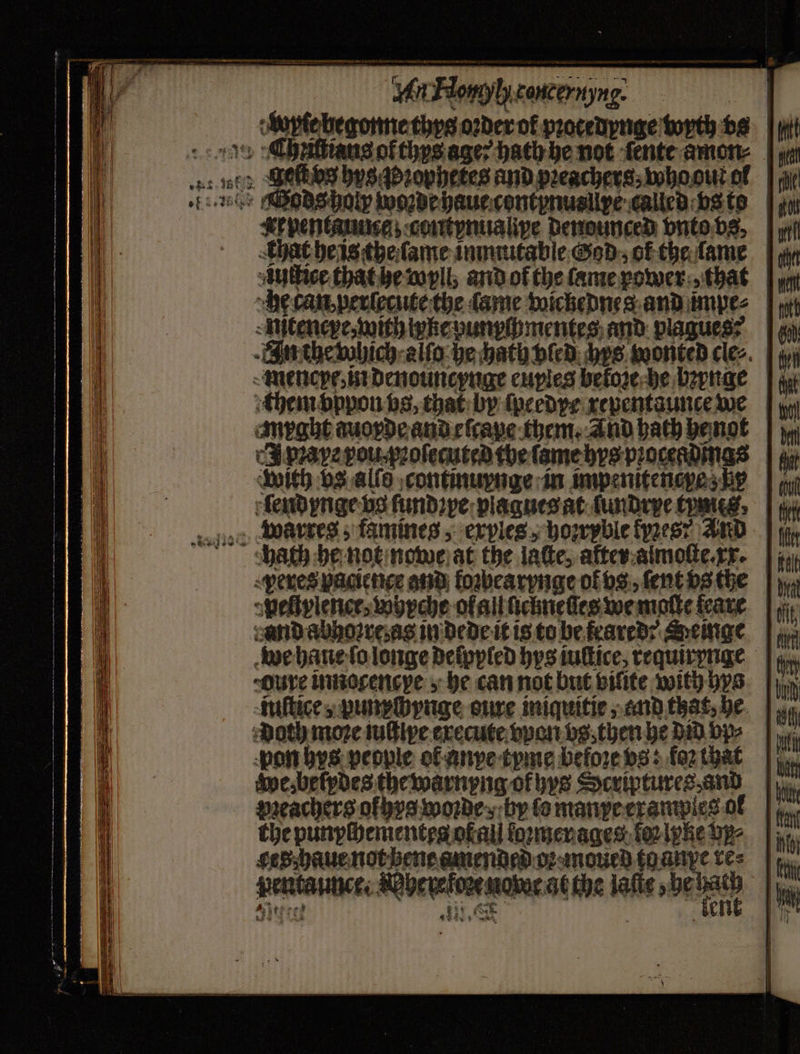 An Homyly, concernyng.
wyse begonne thys order of procedynge wyth vs
Christians of thys age? hath he not sente amon-
gest vs hys Prophetes and preachers, who out of
Gods holy worde haue contynuallye called vs to
repentaunce, contynualiye denounced vnto vs,
that he is the same immutable God, of the same
iustice that he wyll, and of the same power, that
he can, persecute the same wickednes and impe-
nitencye, with lyke punyshmentes, and plagues?
In the which also he hath vsed hys wonted cle-
mencye, in denouncynge euyles before he brynge
them vppon vs, that by speedye repentaunce we
myght auoyde and escape them. And hath he not
I praye you, prosecuted the same hys proceadings
with vs also continuynge in impenitencye, by
sendynge vs sundrye plagues at sundrye tymes,
warres, famines, exyles, horryble fyres? And
hath he not nowe at the laste, after almoste. xx.
yeres pacience and forbearynge of vs, sent vs the
pestylence, whyche of all sicknesses we moste feare
and abhorre, as in dede it is to be feared? Seinge
we haue so longe despysed hys iustice, requirynge
oure innocencye, he can not but visite with hys
iustice, punyshynge oure iniquitie, and that, he
doth more iustlye execute vpon vs, then he did vp-
pon hys people of anye tyme before vs: for that
we, besydes the warnyng of hys Scriptures, and
preachers of hys worde, by so manye examples of
the punyshementes of all former ages, for lyke vy-
ces, haue not bene amended or moued to anye re-
pentaunce. Wherefore nowe at the laste, he hath
sent